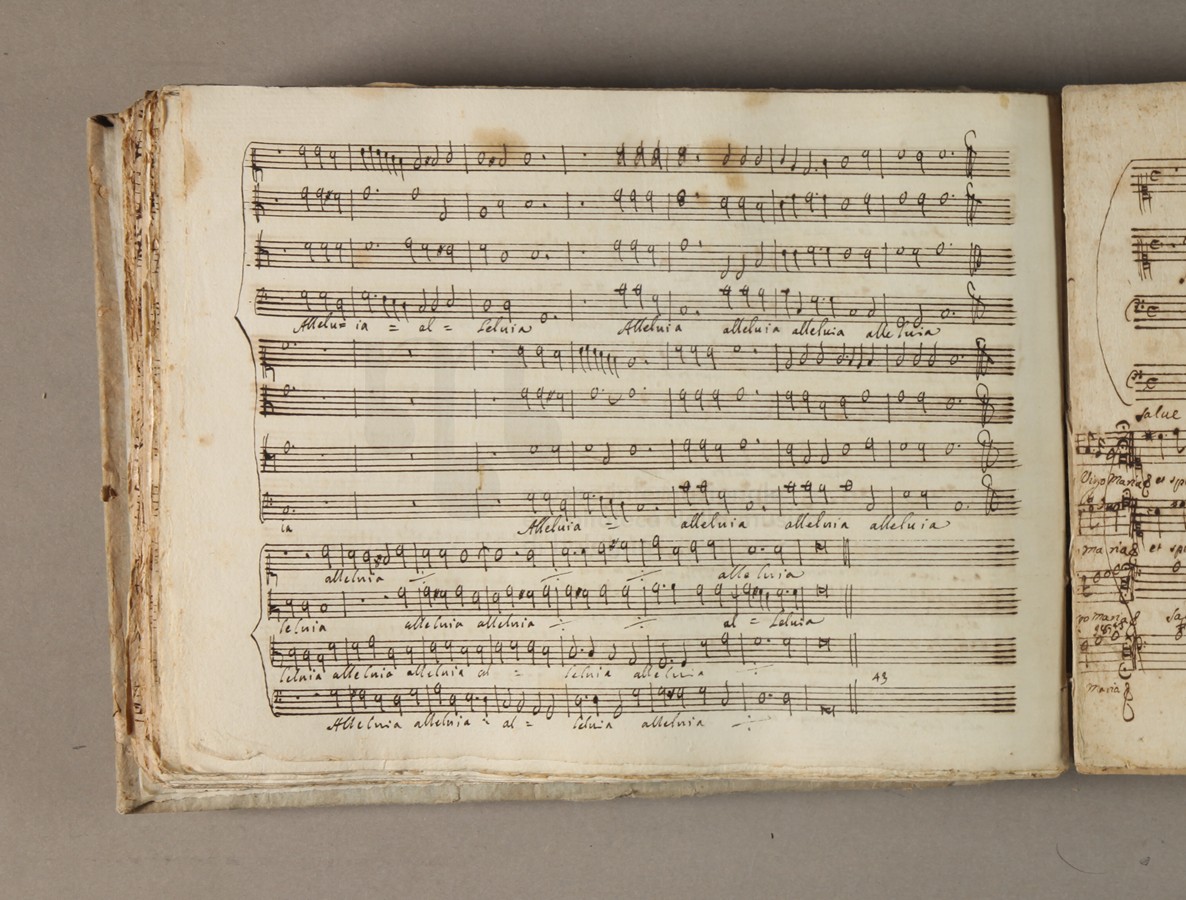 Allelu= ia = al = leluia Alleluia alleluia alleluia alleluia
ia Alleluia = alleluia alleluia alleluia
alleluia ./. ./. ./. alleluia
leluia alleluia alleluia ./. ./. al = leluia
leluia alleluia alleluia al = leluia alleluia ./.
43
Alleluia alleluia = al = leluia alleluia ./.
salue
Maria et
maria et
maria
maria